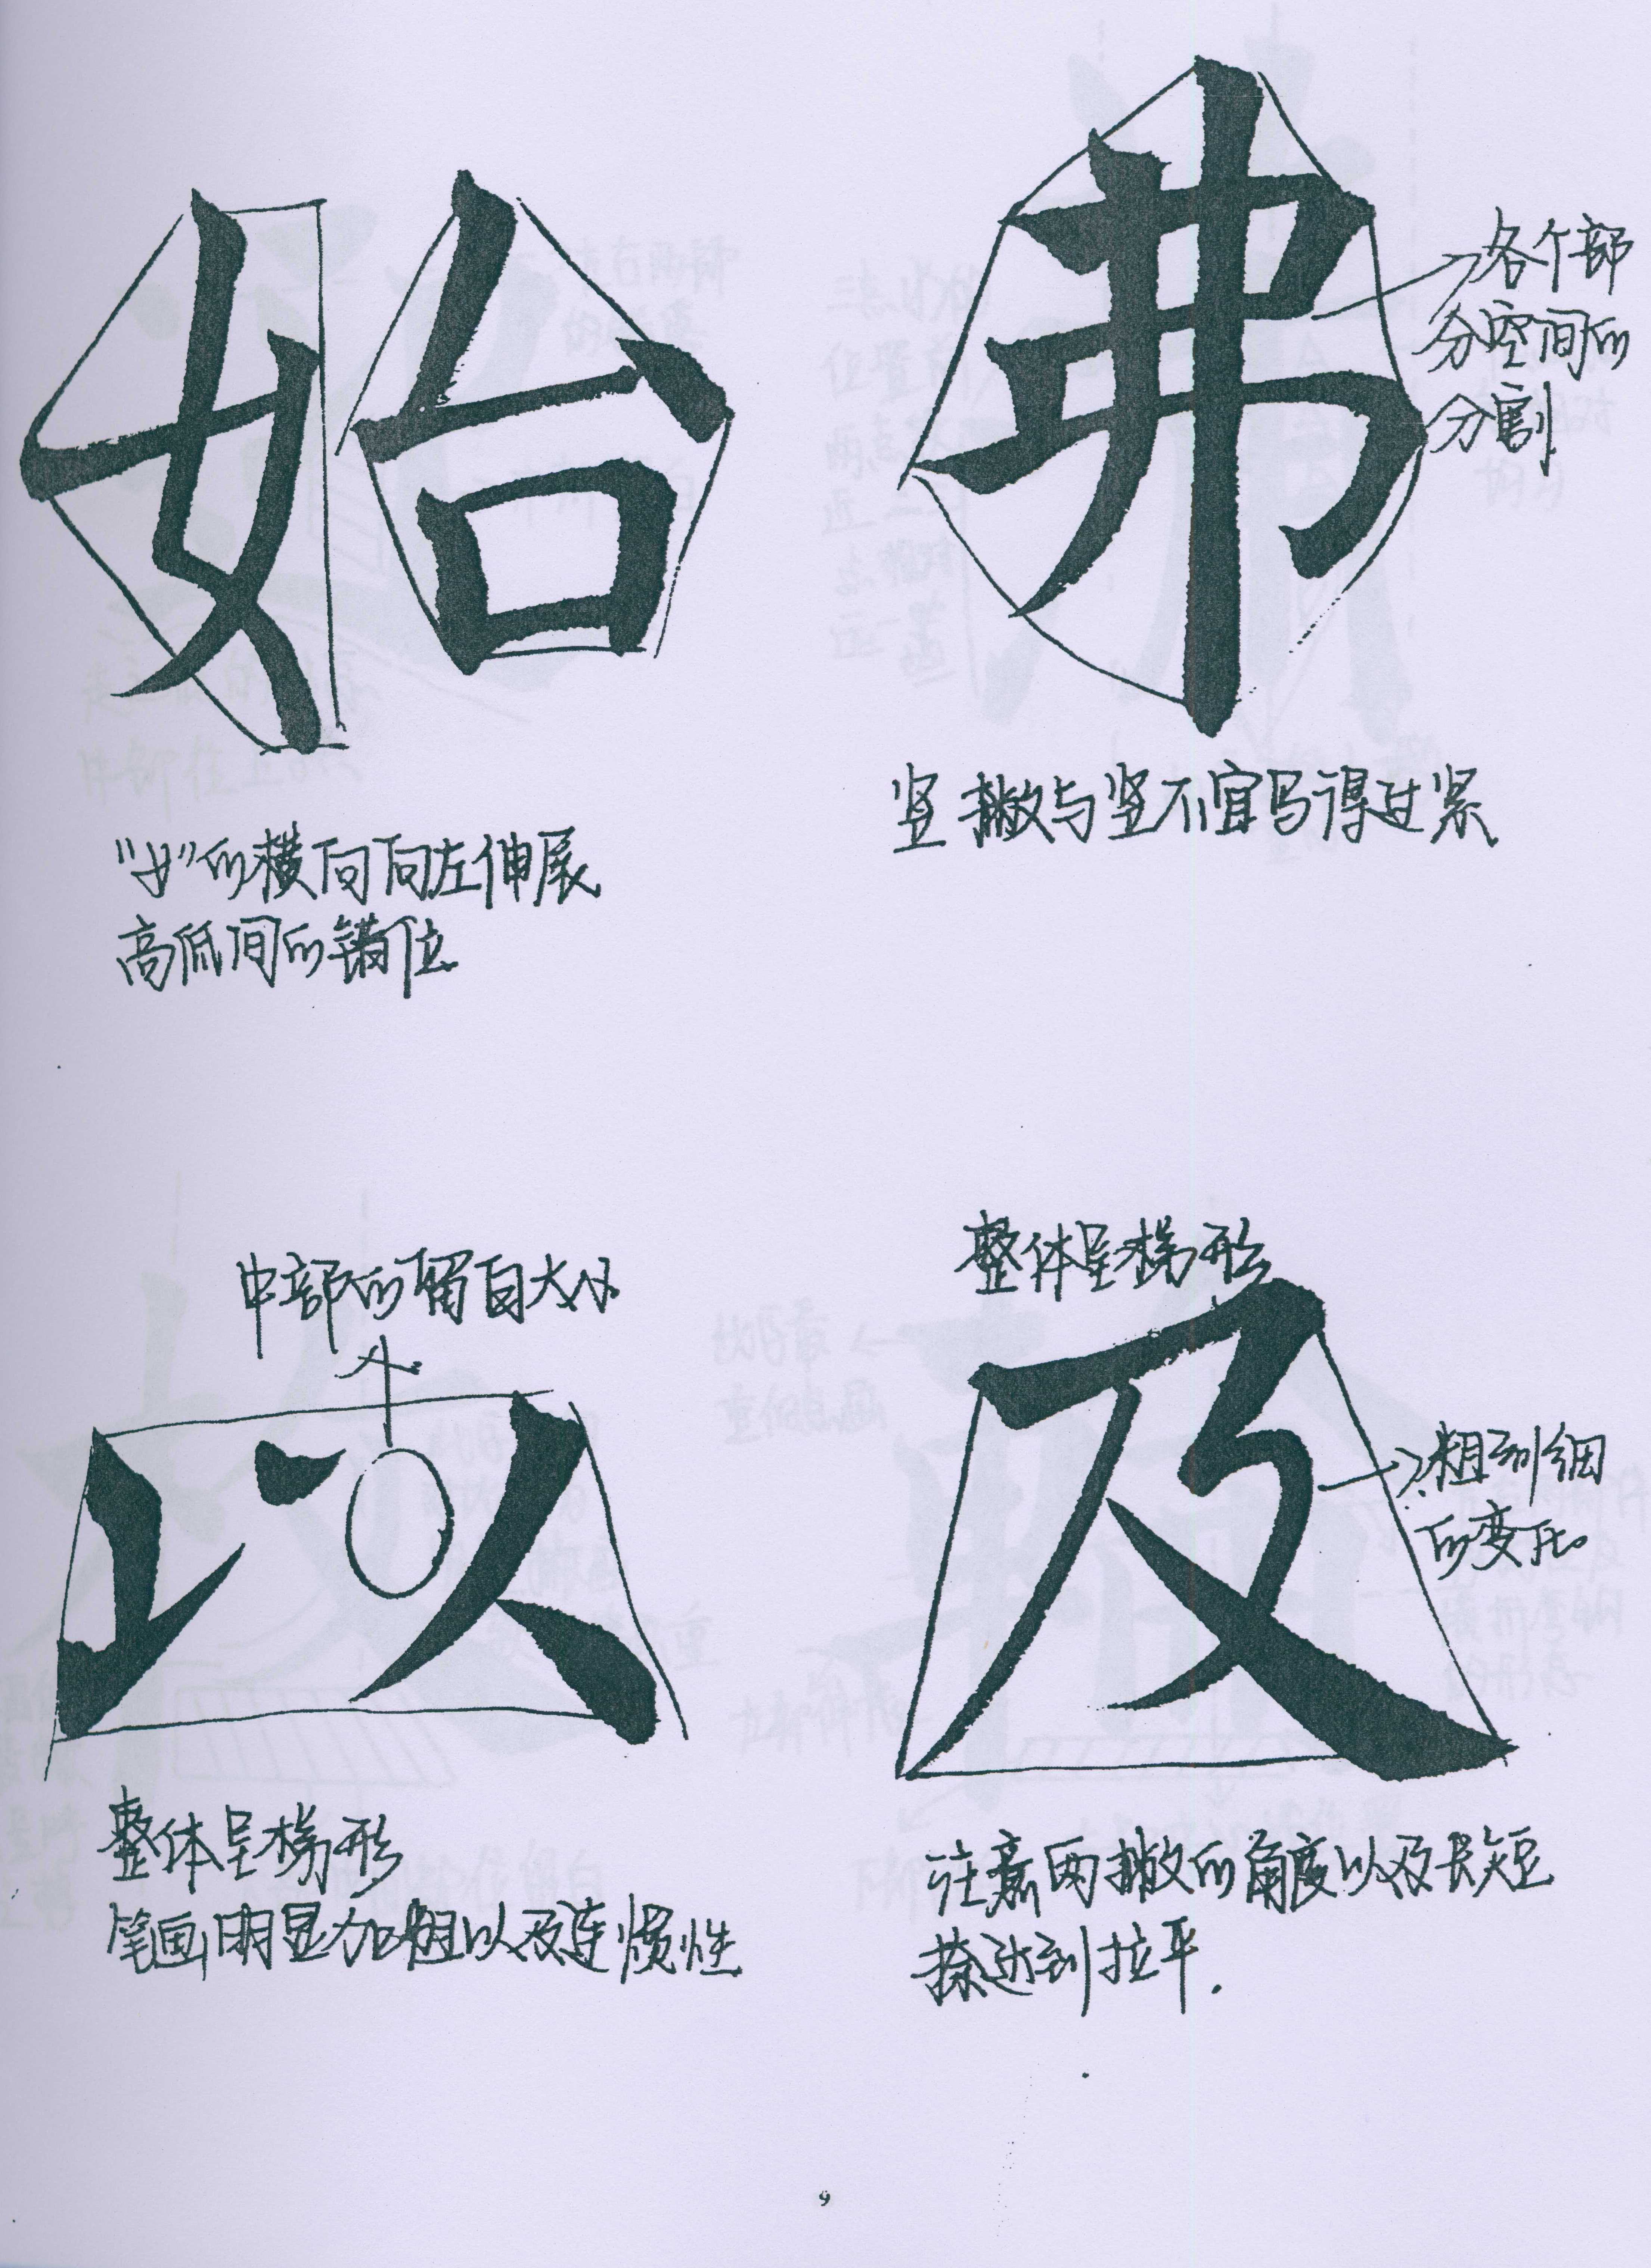 始
"女"的横向向左伸展
高低间的错位
弗
各个部
分空间的
分割
竖撇与竖不宜写得过紧
中部的留白大小
以
整体呈梯形
笔画明显加粗以及连惯性
整体呈梯形
及
粗到细
的变化
注意两撇的角度以及长短
捺达到拉平.
9